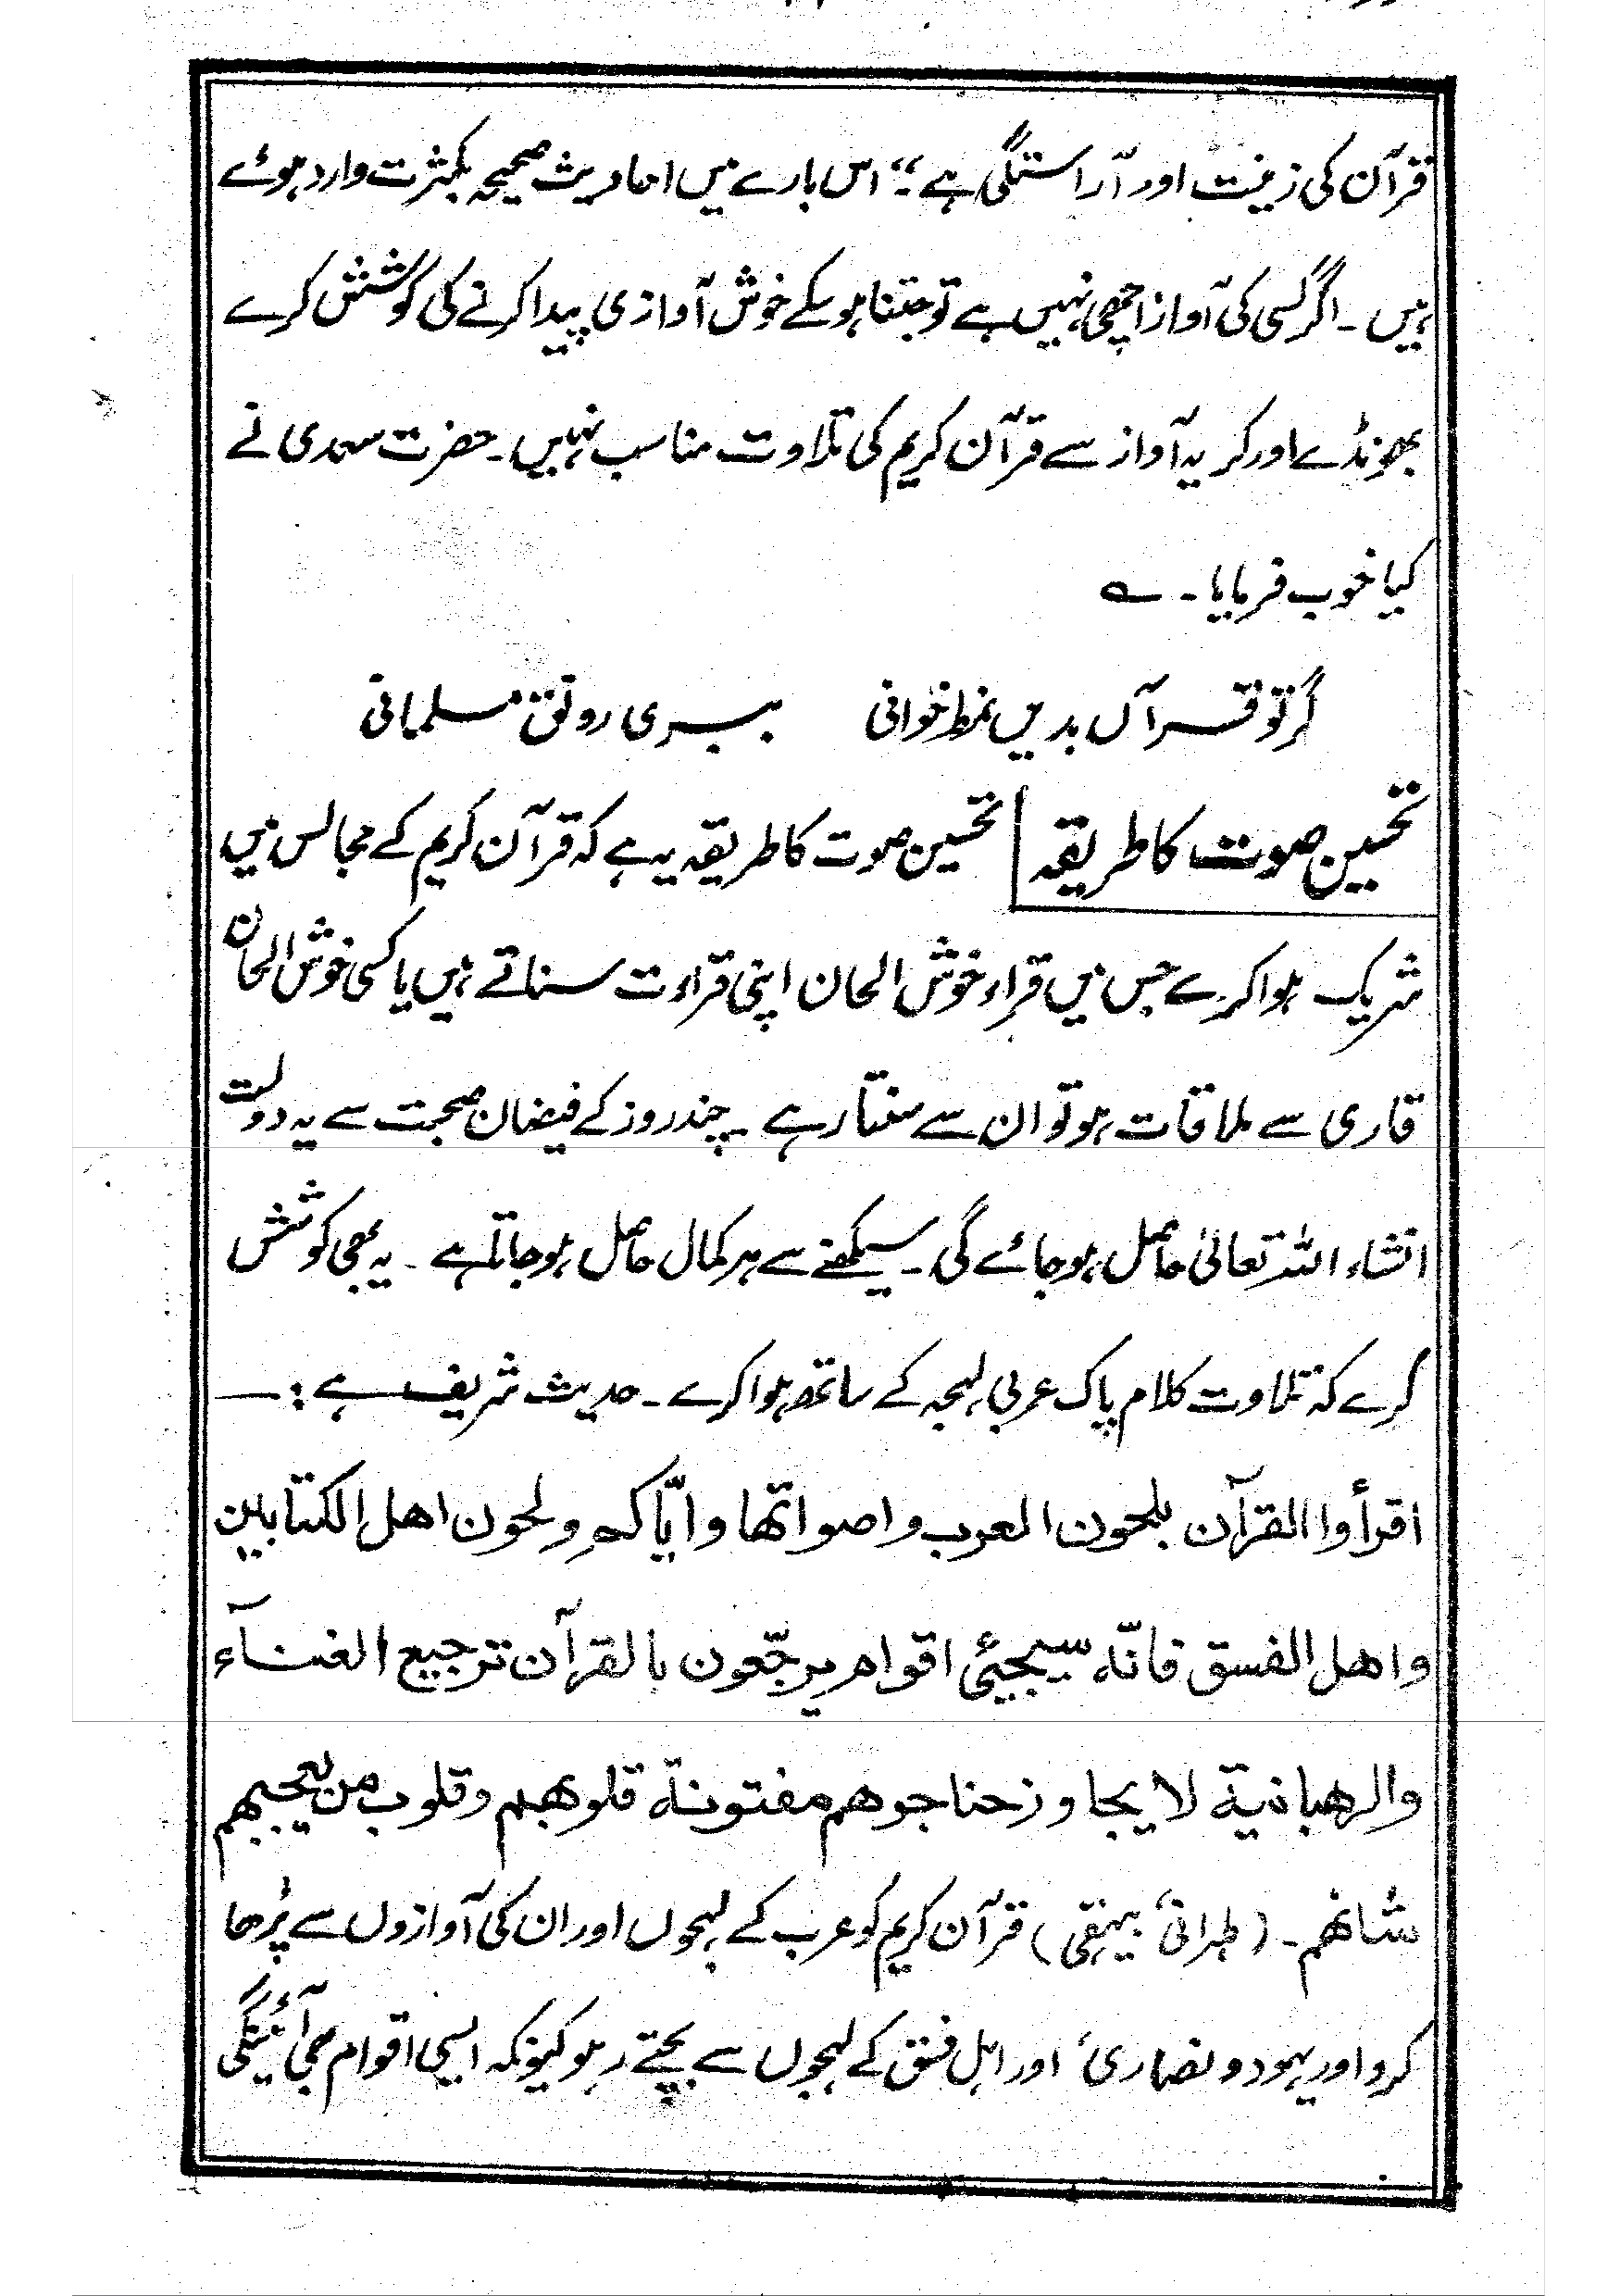 قرآن کی زینت اور آراستگی ہے۔“ اس بارے میں احادیث صحیحہ بکثرت وارد ہوئے
ہیں۔ اگر کسی کی آواز اچھی نہیں ہے تو جتنا ہو سکے خوش آوازی پیدا کرنے کی کوشش کرے
بھونڈے اور کریہ آواز سے قرآن کریم کی تلاوت مناسب نہیں۔ حضرت سعدی نے
کیا خوب فرمایا۔ ؎
گر تو قرآں بدیں نمط خوانی ببری رونق مسلمانی
تحسین صوت کا طریقہ تحسین صوت کا طریقہ یہ ہے کہ قرآن کریم کے مجالس میں
شریک ہوا کرے جس میں قراء خوش الحان اپنی قراءت سناتے ہیں یا کسی خوش الحان
قاری سے ملاقات ہو تو ان سے سنتا رہے۔ چند روز کے فیضان صحبت سے یہ دولت
انشاء اللہ تعالیٰ حاصل ہو جائے گی۔ سیکھنے سے ہر کمال حاصل ہو جاتا ہے۔ یہ بھی کوشش
کرے کہ تلاوت کلام پاک عربی لہجہ کے ساتھ ہوا کرے۔ حدیث شریف ہے:—
اقرأوا القرآن بلحون العرب واصواتها وايّاكم ولحون اهل الكتابين
واهل الفسق فانّه سيجيئ اقوام يرجّعون بالقرآن ترجيع الغنآء
والرهبانية لا يجاوز حناجرهم مفتونة قلوبهم وقلوب من يعجبهم
شانهم۔ (طبرانی، بیہقی) قرآن کریم کو عرب کے لہجوں اور ان کی آوازوں سے پڑھا
کرو اور یہود و نصاریٰ، اور اہل فسق کے لہجوں سے بچتے رہو کیونکہ ایسی اقوام بھی آئینگی